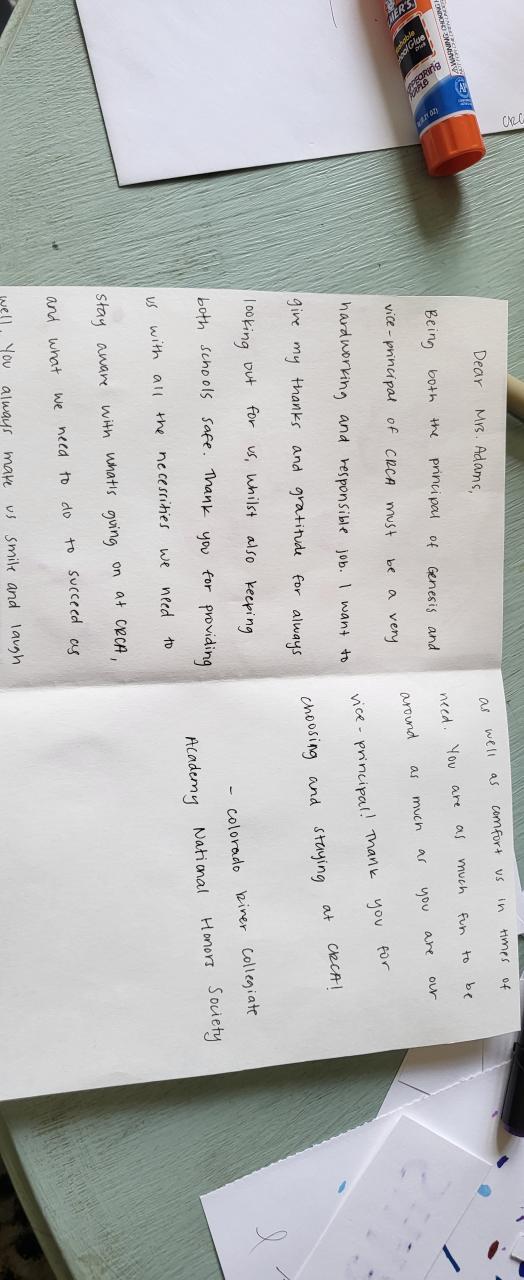 Dear Mrs. Adams,
Being both the principal of Genesis and
vice-principal of CRCA must be a very
hardworking and responsible job. I want to
give my thanks and gratitude for always
looking out for us, whilst also keeping
both schools safe. Thank you for providing
us with all the necessities we need to
stay aware with what's going on at CRCA,
and what we need to do to succeed as
well. You always make us smile and laugh
as well as comfort us in times of
need. You are as much fun to be
around as much as you are our
vice-principal! Thank you for
choosing and staying at CRCA!
- Colorado River Collegiate
Academy National Honors Society
School Glue
PURPLE
AP